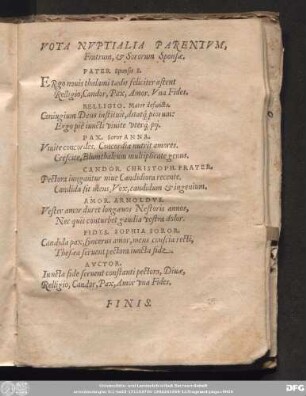 VOTA NVPTIALIA PARENTVM,
Fratrum, & Sororum Sponsæ.
PATER Sponsæ
Religio, Candor, Pax, Amor, Vna Fides.
RELLIGIO. Mater defuncta.
Coniugium Deus instituit,
Ergo piè iuncti viuite
PAX. Soror ANNA.
Viuite concordes. Concordia nutrit amores.
multiplicate genus.
CANDOR. CHRISTOPH. FRATER.
Pectora iungantur niue Candidiora recente.
Candida sit mens, Vox, candidum & ingenium.
AMOR. ARNOLDVS.
Vester amor duret longæuos Nestoris annos,
Nec quis conturbet gaudia vestra dolor.
FIDES. SOPHIA SOROR.
Candida pax, syncerus amor, mens conscia recti,
Thesea seruent pectora iuncta fide.
AVCTOR.
Iuncta fide seruent constanti pectora, Diuæ,
Relligio, Candor, Pax, Amor vna Fides.
FINIS.
DFG